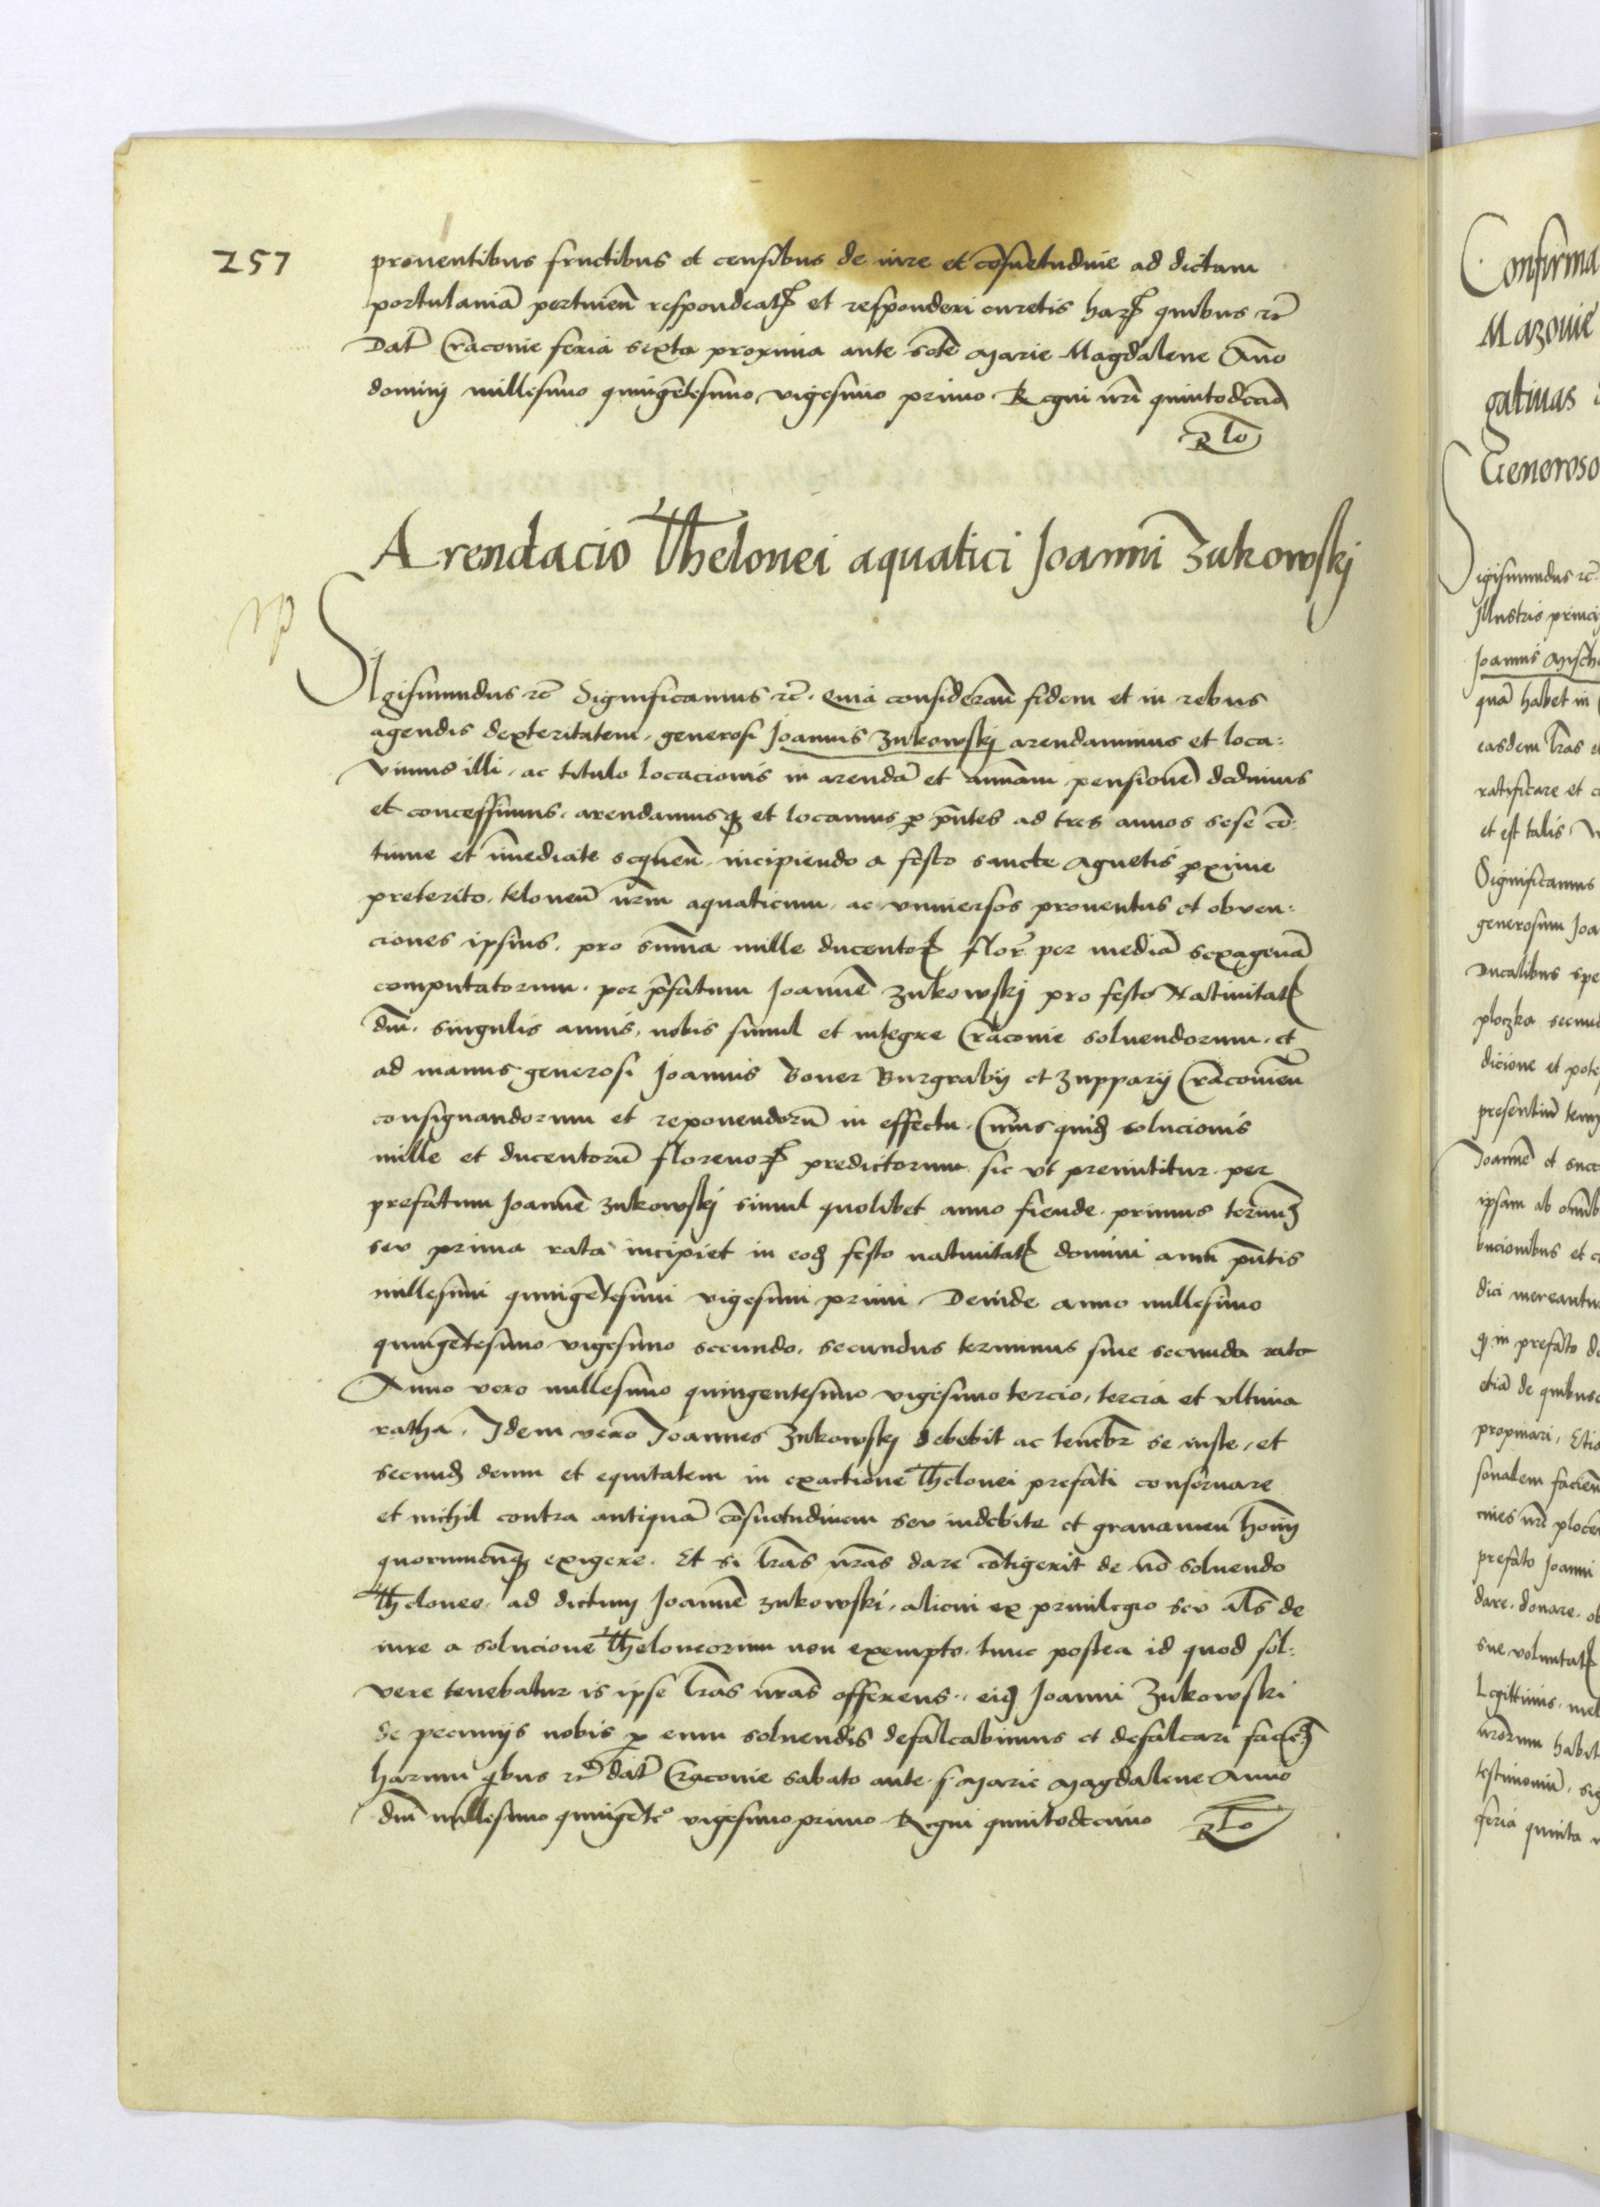 257
prouentibus fructibus et censibus de iure et cōsuetudine ad dictam
portulaniā pertineñ respondeatꝭ et responderi curetis harꝝ quibus ꝛc̄
Dat̄ Cracouie feria sexta proxima ante sctē Marie Magdalene Año
dominj millesimo quingētesimo vigesimo primo Regni nr̄i quintodecīo
Rta
Arendacio Thelonei aquatici Joanni Zukowskj
Sigismundus ꝛc̄ Significamus ꝛc̄. Quia considerañ fidem et in rebus
agendis dexteritatem, generosi Joannis Zukowskj arendauimus et loca:
vimus illi, ac titulo locacionis in arendā et annuam pensionē dedimus
et concessimus, arendamusqꝫ et locamus ꝑ pñtes ad tres annos sese cō:
tinue et īmediate sequeñ, incipiendo a festo sancte Agnetis proxime
preterito, teloneū nrm̄ aquaticum, ac vniuersos prouentus et obuen:
ciones ipsius, pro summa mille ducentoꝝ flor̄ per mediā sexagenā
computatorum, per p̄fatum Joannē Zukowskj pro festo Natiuitatꝭ
dn̄i, singulis annis, nobis simul et integre Cracouie soluendorum, et
ad manus generosi Joannis Boner Burgrabij et Zupparij Cracouieñ
consignandorum et reponendorū in effectu. Cuius quidꝫ solucionis
mille et ducentorū florenoꝝ predictorum, sic vt premittitur, per
prefatum Joannē Zukowskj simul quolibet anno fiende, primus terminꝰ
seu prima rata incipiet in eodꝫ festo natiuitatꝭ domini anni pñtis
millesimi quingētesimi vigesimi primi, Deinde anno millesimo
quingētesimo vigesimo secundo, secundus terminus siue secunda rata
Anno vero millesimo quingentesimo vigesimo tercio, tercia et vltima
ratha, Idem vero Joannes Zukowskj debebit ac tenebr̄ se iuste, et
secundꝫ deum et equitatem in exactione Thelonei prefati conseruare
et nichil contra antiquā cōsuetudinem seu indebite et grauamen hoīm
quorumcunqꝫ exigere. Et si lrās nrās dare cōtigerit de nō soluendo
Theloneo, ad dictum Joannē Zukowski, alicui ex priuilegio seu als̄ de
iure a solucione Theloneorum non exempto, tunc postea id quod sol:
vere tenebatur is ipse lrās nrās offerens, eidꝫ Joanni Zukowski
de pecunijs nobis ꝑ eum soluendis defalcabimus et defalcari faciemꝰ
harum qbus ꝛc̄ dat̄ Cracouie sabato ante S. Marie Magdalene Anno
dn̄i millesimo quingētᵒ vigesimo primo Regni quintodecimo Rta
Confirma
Mazouie
gatiuas
Generoso
Sigismundus ꝛc̄
Illustris princi
Joannis
quā habet in
easdem lrās
ratificare et
et est talis
Significamus
generosum Joa
Ducalibus spe
ploczka
dicione et pote
presentiū
Joannē et succ
ipsam ab omīb
bucionibus et
dici mereantur
in prefato
etiā de quibus
propinari, Etia
sonalem facieñ
prefato Joanni
dare, donare,
sue voluntatꝭ
Legittimis,
habit
testimoniū, sig
feria quinta